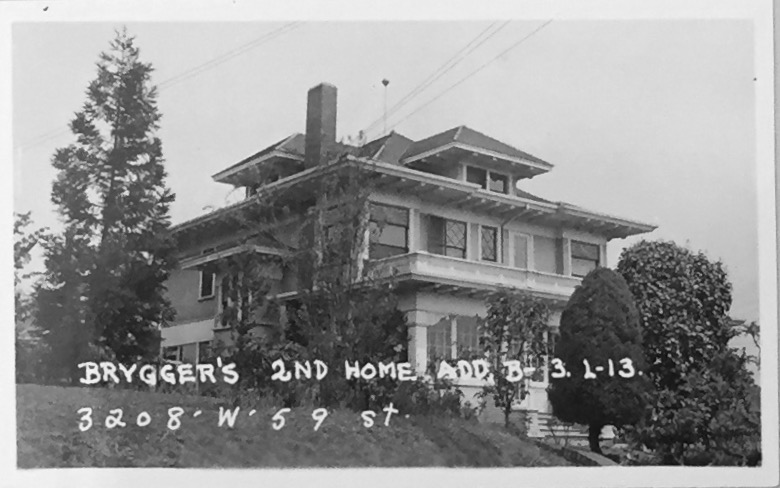 BRYGGER'S 2ND HOME ADD. B-3. L-13.
3208 · W · 59 st.